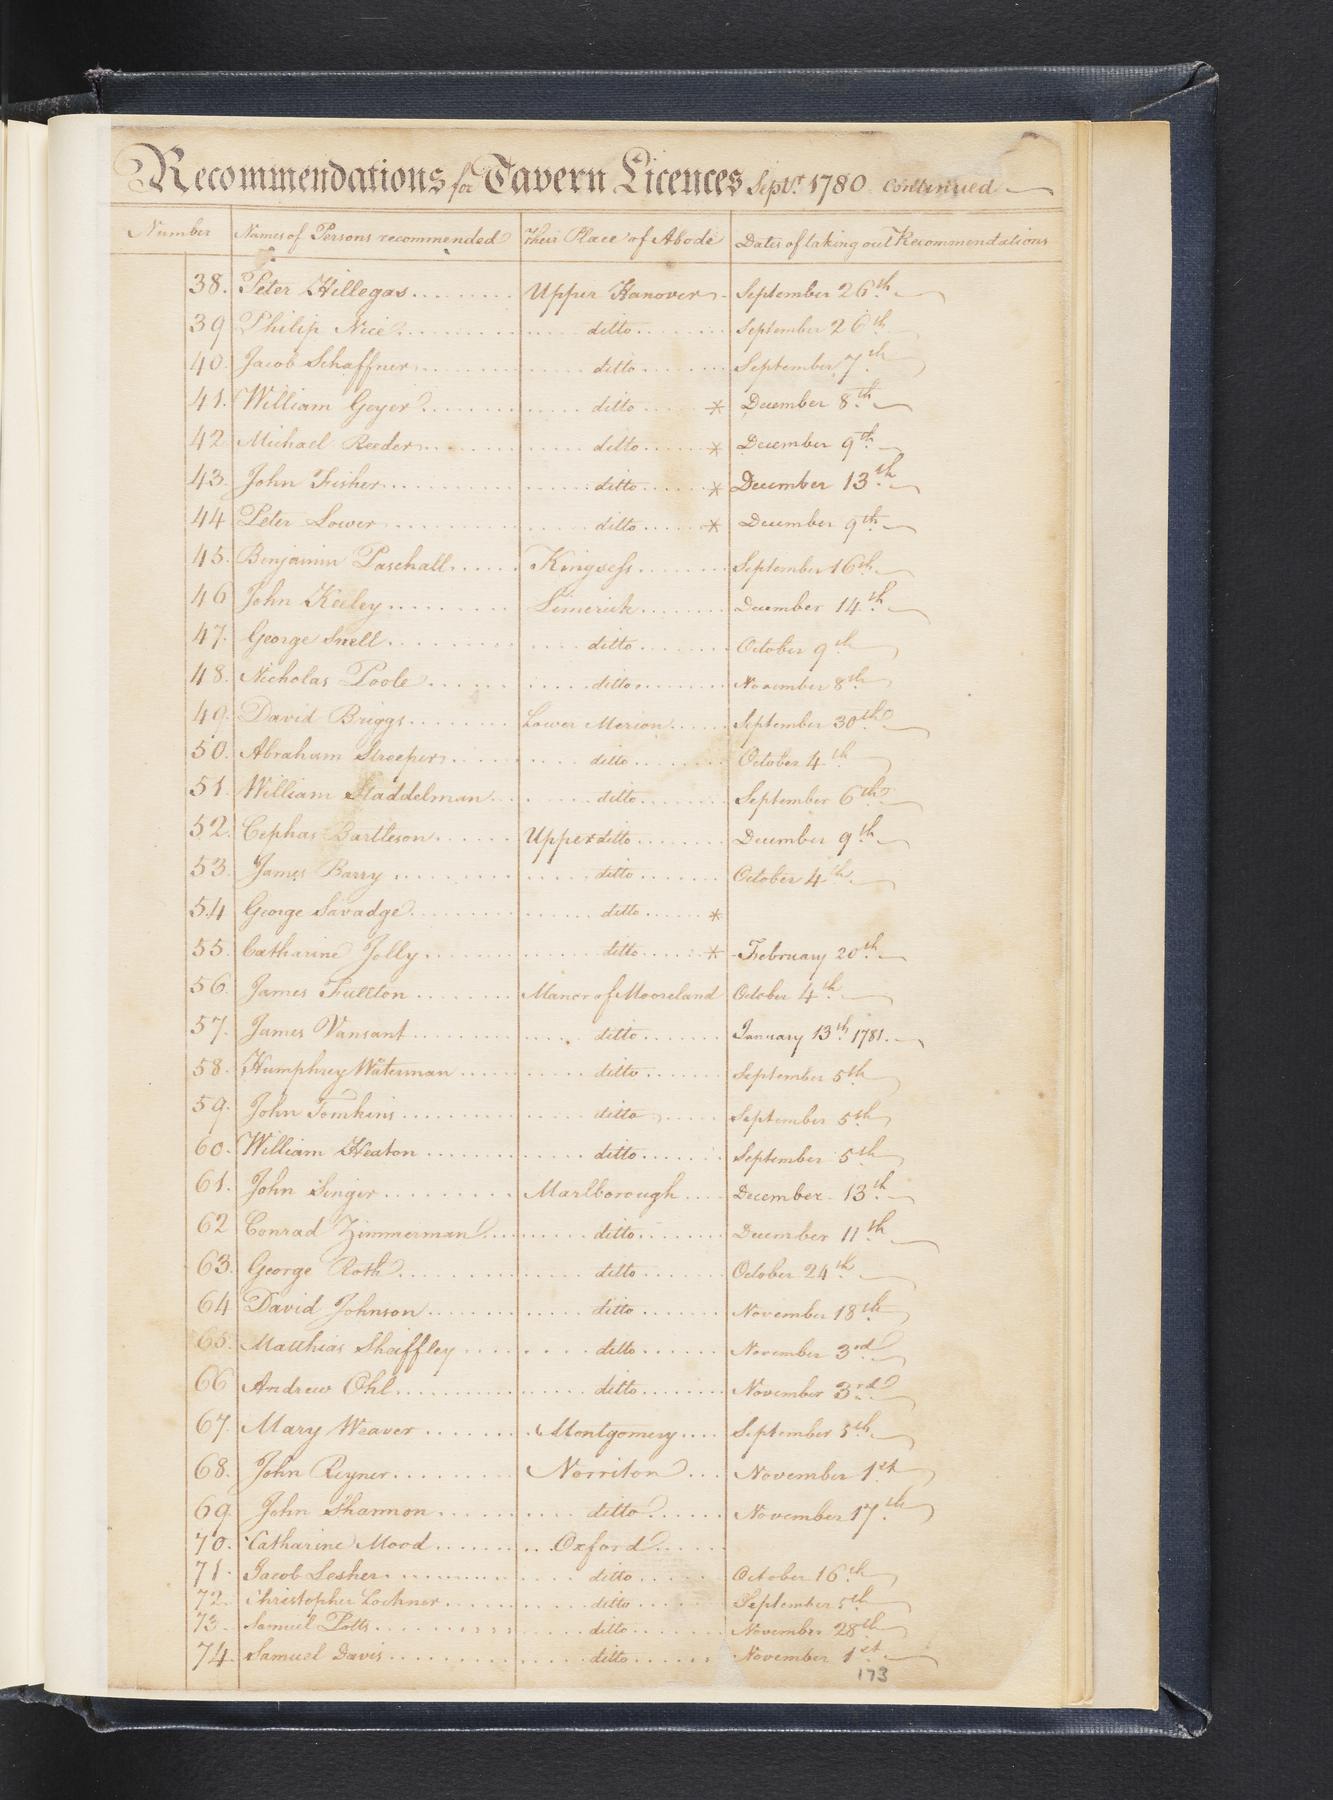 Recommendations for Tavern Licences Sept.r 1780 continued
Number Names of Persons recommended Their Place of Abode Dates of taking out Recommendations
38. Peter Hillegas......... Upper Hanover. September 26.th
39 Philip Nice.......... ditto........ September 26th
40. Jacob Schaffner......... ditto....... September 7.th
41. William Geyer......... ditto..... * December 8.th
42 Michael Reeder......... ditto..... * December 9th
43. John Fisher......... ditto..... * December 13.th
44 Peter Lower......... ditto..... * December 9th.
45. Benjamin Paschall...... Kingsess......... September 16th
46 John Keeley......... Limerick........ December 14.th
47. George Snell......... ditto........ October 9th
48. Nicholas Poole......... ditto........ November 8th
49. David Briggs......... Lower Merion...... September 30th
50. Abraham Streeper......... ditto........ October 4th
51. William Staddelman......... ditto........ September 6th
52. Cephas Bartleson...... Upper ditto........ December 9.th
53. James Barry......... ditto....... October 4th
54 George Savadge......... ditto..... *
55. Catharine Jolly......... ditto..... * February 20.th
56. James Fullton........ Manor of Mooreland October 4th
57. James Vansant......... ditto....... January 13.th 1781.
58. Humphrey Waterman......... ditto....... September 5th
59. John Tomkins......... ditto....... September 5th
60. William Heaton......... ditto....... September 5th
61. John Singer......... Marlborough.... December 13.th
62 Conrad Zimmerman......... ditto....... December 11.th
63. George Roth......... ditto....... October 24.th
64 David Johnson......... ditto....... November 18th
65. Matthias Shaiffley......... ditto....... November 3rd
66 Andrew Ohl......... ditto....... November 3rd
67. Mary Weaver........ Montgomery.... September 5th
68. John Reyner......... Norriton... November 1st
69. John Shannon......... ditto...... November 17.th
70. Catharine Mood......... Oxford......
71. Jacob Lesher......... ditto...... October 16.th
72. Christopher Lochner......... ditto...... September 5th
73. Samuel Potts......... ditto...... November 28th
74. Samuel Davis......... ditto...... November 1.st
173